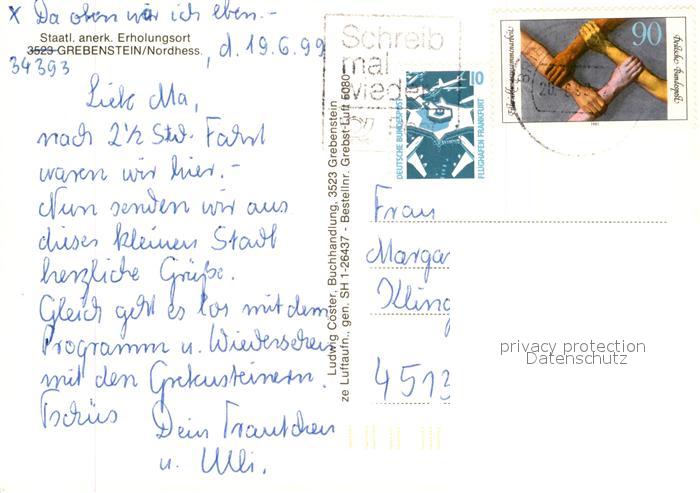 x Da oben war ich eben.-
Staatl. anerk. Erholungsort
3523 GREBENSTEIN/Nordhess.
34393
, d. 19.6.99
Liebe Ma,
nach 2½ Std. Fahrt
waren wir hier.-
Nun senden wir aus
dieser kleinen Stadt
herzliche Grüße.
Gleich geht es los mit dem
Programm u. Wiedersehen
mit den Grebensteinern.
Tschüs
Dein Trautchen
u. Ulli.
Ludwig Coster, Buchhandlung, 3523 Grebenstein
ze Luftaufn., gen. SH 1-26437 - Bestellnr. Grebst-Luft 6080
Schreib
mal
wieder
10
DEUTSCHE BUNDESPOST
FLUGHAFEN FRANKFURT
90
Deutsche Bundespost
1981
Frau
Margar
Kling
4513
privacy protection
Datenschutz